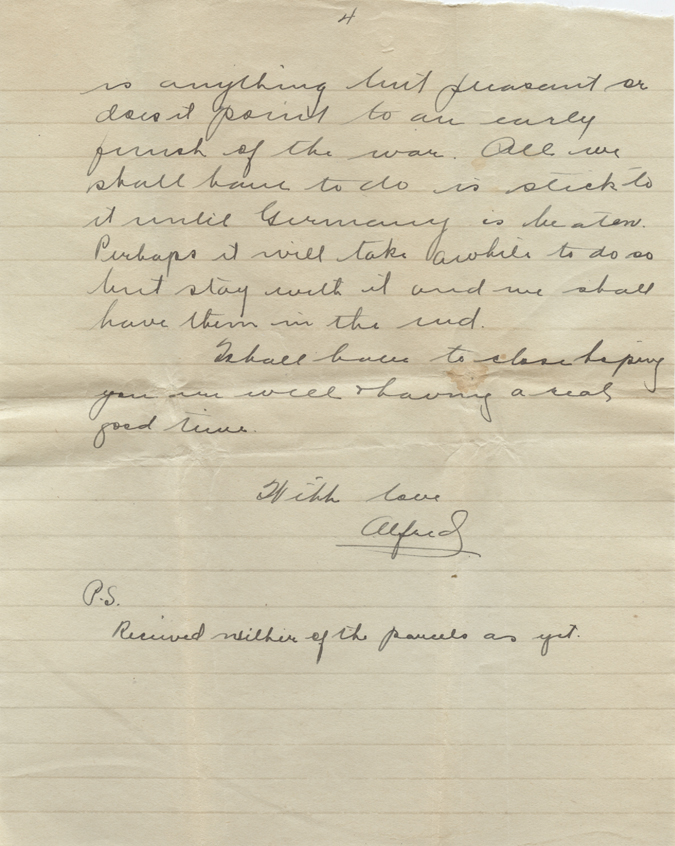 4
is anything but pleasant or
does it point to an early
finish of the war. All we
shall have to do is stick to
it until Germany is beaten.
Perhaps it will take awhile to do so
but stay with it and we shall
have them in the end.
I shall have to close hoping
you are well & having a real
good time.
With love
Alfred
P.S.
Received neither of the parcels as yet.